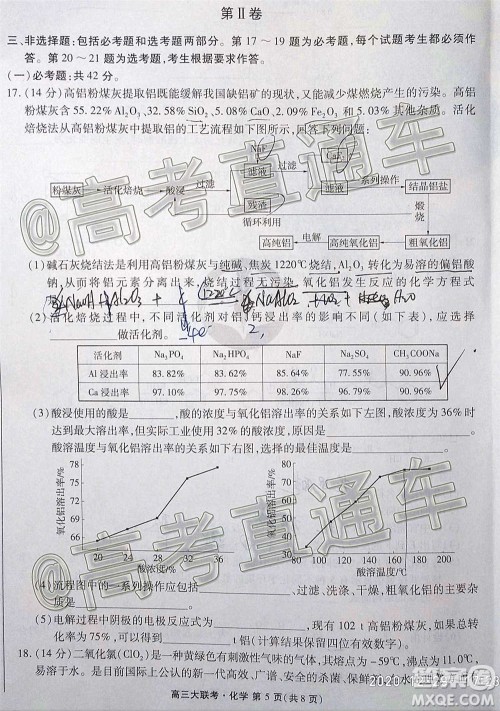 第Ⅱ卷
三、非选择题：包括必考题和选考题两部分。第17～19题为必考题，每个试题考生都必须作
答。第20～21题为选考题，考生根据要求作答。
(一)必考题：共42分。
17.(14分)高铝粉煤灰提取铝既能缓解我国缺铝矿的现状，又能减少煤燃烧产生的污染。高铝
粉煤灰含55.22%Al₂O₃、32.58%SiO₂、5.08%CaO、2.09%Fe₂O₃和5.03%其他杂质。活化
焙烧法从高铝粉煤灰中提取铝的工艺流程如下图所示，回答下列问题：
NaF CaF₂
过滤 滤液 过滤 滤液 系列操作 结晶铝盐
粉煤灰 活化焙烧 酸浸 残渣 滤液 煅烧
循环利用 高纯铝 电解 粗氧化铝
(1)碱石灰烧结法是利用高铝粉煤灰与纯碱、焦炭1220℃烧结，Al₂O₃转化为易溶的偏铝酸
钠，从而将铝元素分离出来，烧结过程无污染，氧化铝发生反应的化学方程式
(2)活化焙烧过程中，不同活化剂对铝钙浸出率的影响不同(如下表)，应选择
做活化剂。
活化剂 Na₃PO₄ Na₂HPO₄ NaF Na₂SO₄ CH₃COONa
Al浸出率 83.82% 83.62% 84.56% 83.94% 90.96%
Ca浸出率 97.10% 97.75% 98.26% 96.79% 90.96%
(3)酸浸使用的酸是，酸的浓度与氧化铝溶出率的关系如以下左图，酸浓度为36%时
达到最大溶出率，但实际工业使用32%的酸浓度，原因是。
酸溶温度与氧化铝溶出率的关系如以下右图，选择的最佳温度是。
氧化铝溶出率/%
80
75
70
65
60
20 24 28 32 36
酸浓度/%
氧化铝溶出率/%
80
70
60
50
40
30
80 100 120 140 160 180 200
酸溶温度/℃
(4)流程图中的一系列操作应包括、过滤、洗涤、干燥，粗氧化铝中的杂质主要
是。
(5)电解过程中阴极的电极反应式为，现有102 t高铝粉煤灰，设整个过程的转化
率为75%，可以得到 t铝(计算结果保留四位有效数字)。
18.(14分)二氧化氯(ClO₂)是一种黄绿色有刺激性气味的气体，其熔点为－59℃，沸点为11.0℃，
易溶于水。是目前国际上公认的新一代高效、广谱、安全的杀菌、保鲜剂
高三大联考·化学 第5页(共8页)
@高考直通车
@高考直通车